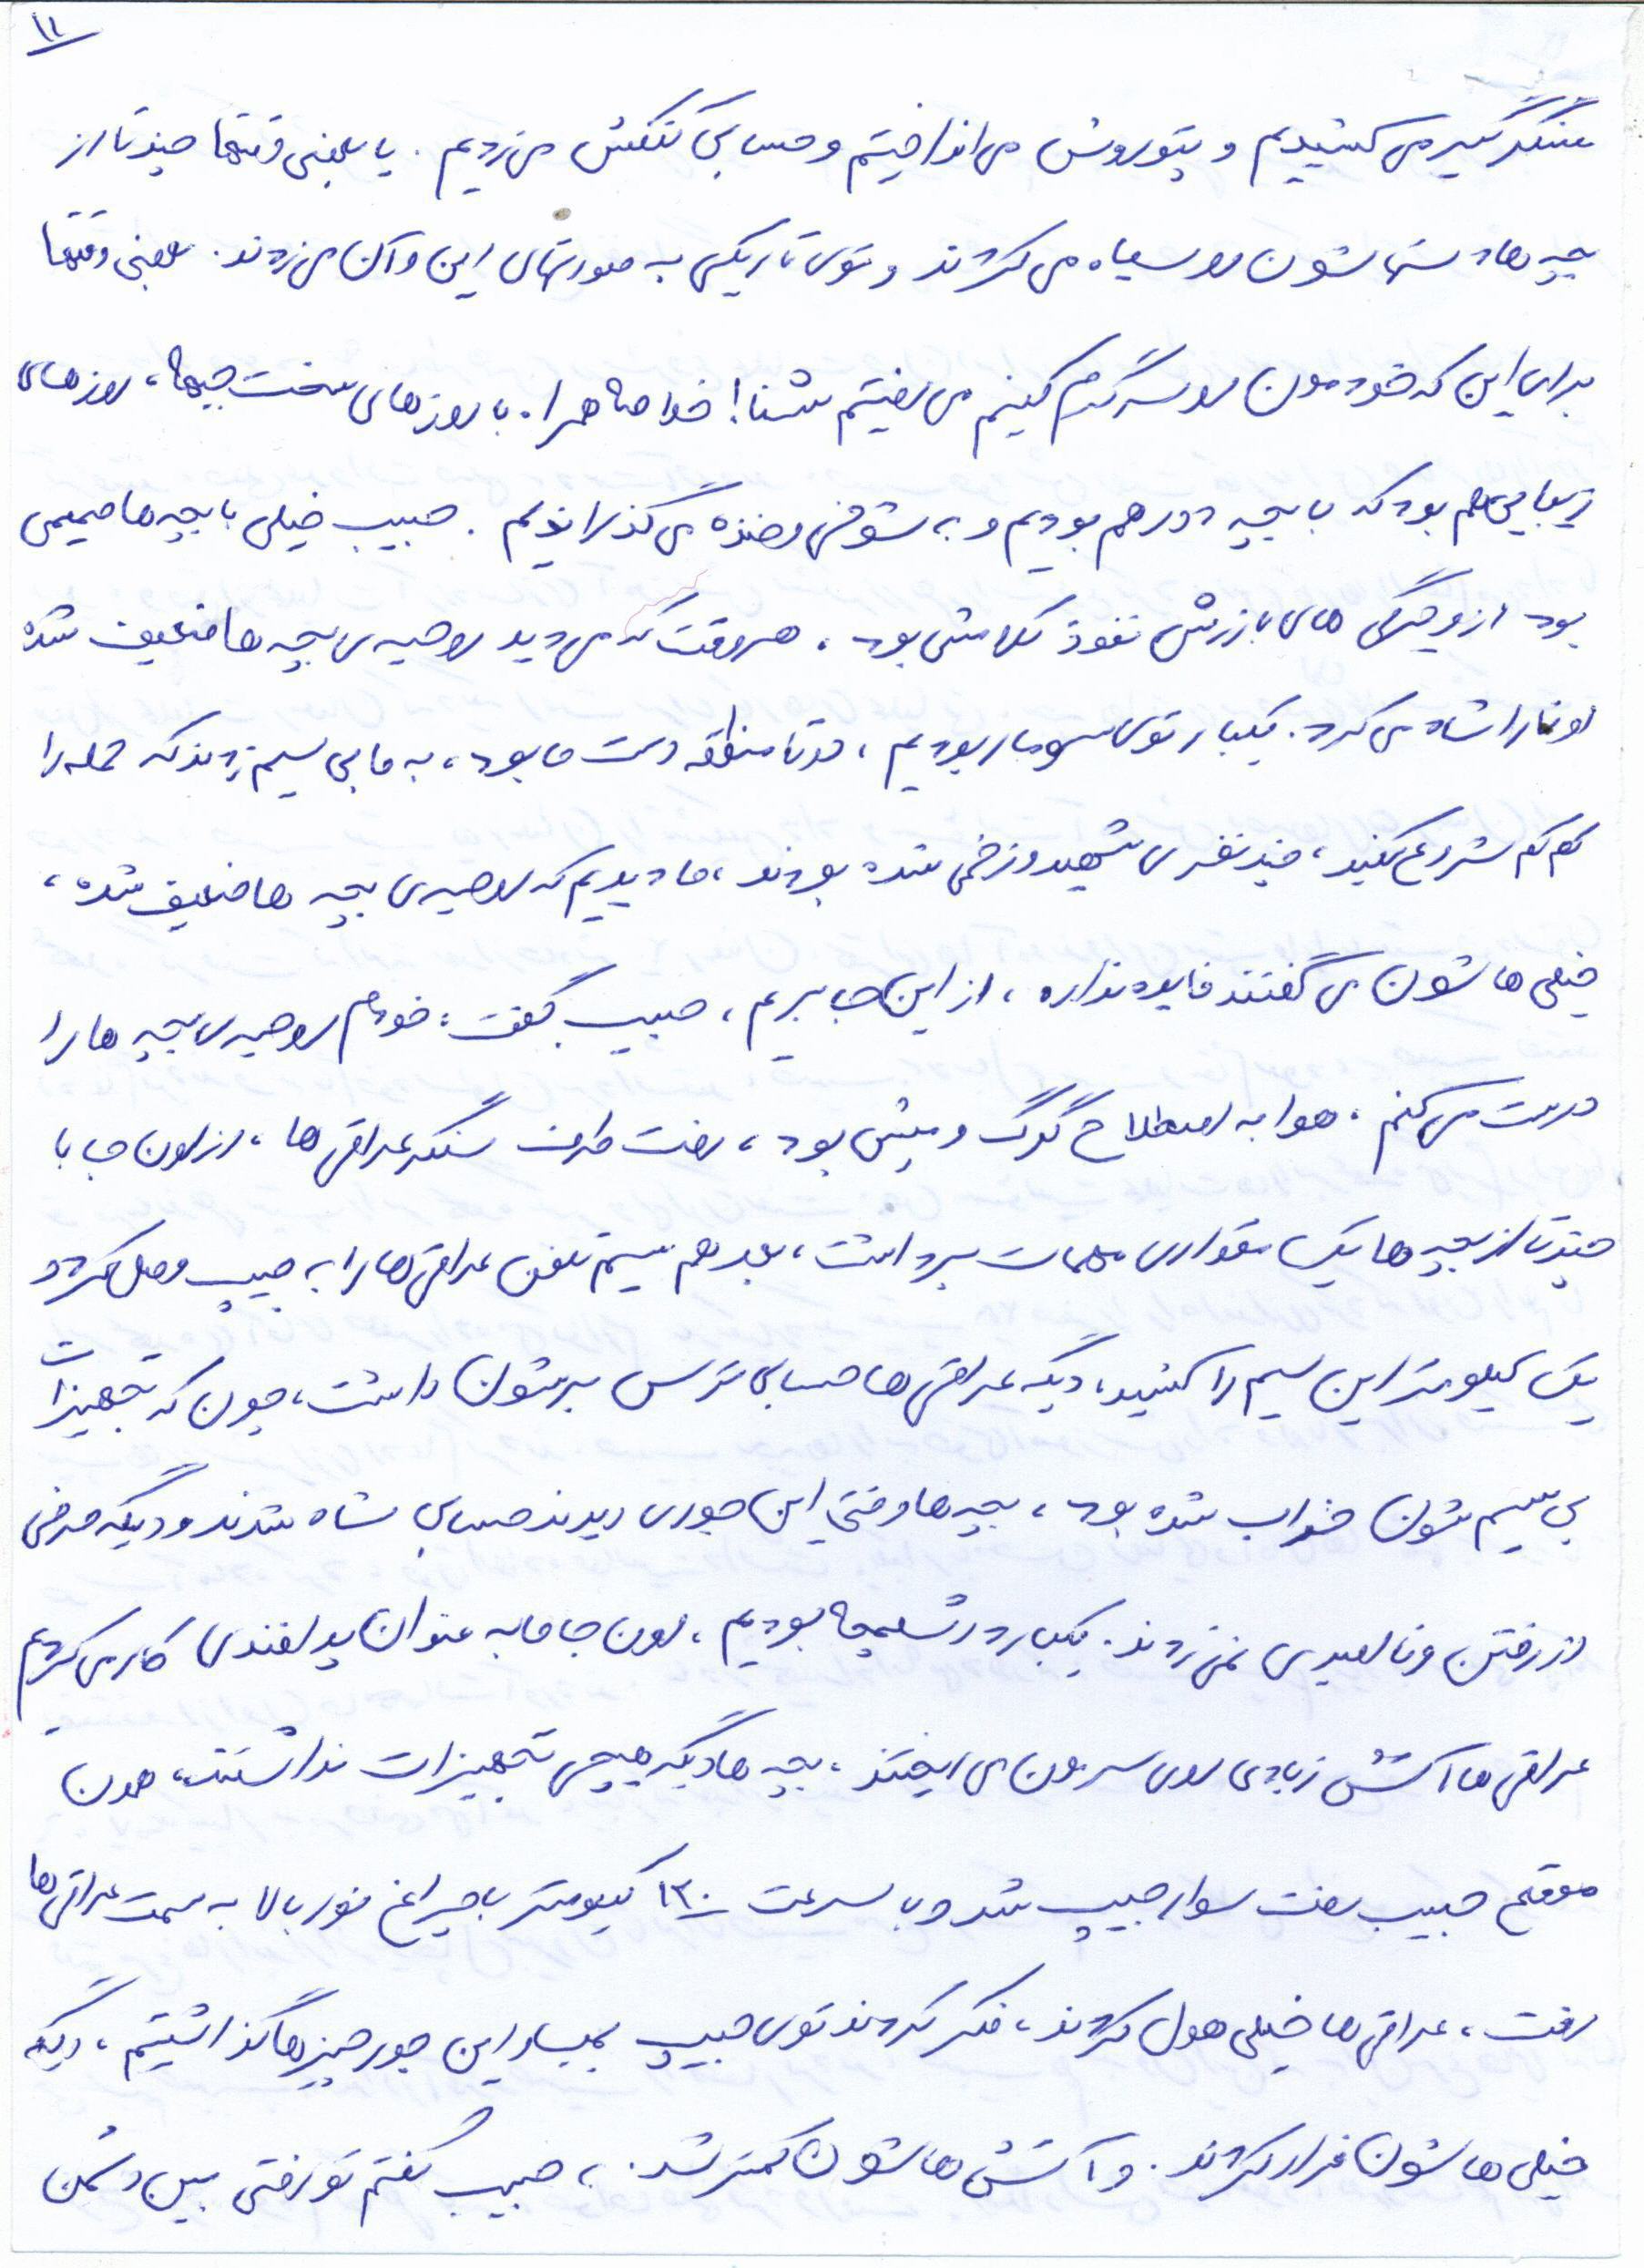 ۱۱
سنگر گیر می کشیدیم و پتو روش می انداختیم و حسابی کتکش می زدیم. یا بعضی وقتها چند تا از
بچه ها دستهاشون رو سیاه می کردند و توی تاریکی به صورتهای این و آن می زدند. بعضی وقتها
برای این که خودمون رو سرگرم کنیم می رفتیم شنا! خواهر همراه با روزهای سخت جبهه، روزهای
زیبایی هم بود که با بچه دور هم بودیم و به شوخی و خنده می گذراندیم. حبیب خیلی با بچه ها صمیمی
بود از ویژگی های بارزش نفوذ کلامش بود، هر وقت که می دید روحیه ی بچه ها ضعیف شده
اونا را شاد می کرد. یکبار توی سومار بودیم، دو تا منطقه دست ما بود، به ما بی سیم زدند که حمله را
کم کم شروع کنید، چند نفری شهید و زخمی شده بودند، ما دیدیم که روحیه ی بچه ها ضعیف شده،
خیلی هاشون می گفتند فایده نداره، از این جا بریم، حبیب گفت: خودم روحیه ی بچه ها را
درست می کنم. هوا به اصطلاح گرگ و میش بود، رفت طرف سنگر عراقی ها، از اون جا با
چند تا از بچه ها یک مقداری مهمات برداشت، بعد هم سیم تلفن عراقی ها را به جیپ وصل کرد و
یک کیلومتر این سیم را کشید، دیگه عراقی ها حسابی ترس برشون داشت، چون که تجهیزات
بی سیم شون خراب شده بود، بچه ها وقتی این جوری دیدند حسابی شاد شدند و دیگه حرفی
از رفتن و ناامیدی نمی زدند. یکبار در شلمچه بودیم، اون جا ما به عنوان پدافندی کار می کردیم
عراقی ها آتش زیادی روی سرمون می ریختند، بچه ها دیگه هیچی تجهیزات نداشتند، همون
موقع حبیب رفت سوار جیپ شد و با سرعت ۱۳۰ کیلومتر با چراغ نور بالا به سمت عراقی ها
رفت، عراقی ها خیلی هول کردند، فکر کردند توی جیپ بمب و این جور چیزها گذاشتیم، دیگه
خیلی هاشون فرار کردند. و آتش هاشون کمتر شد. ، حبیب گفتم تو رفتی بین دشمن